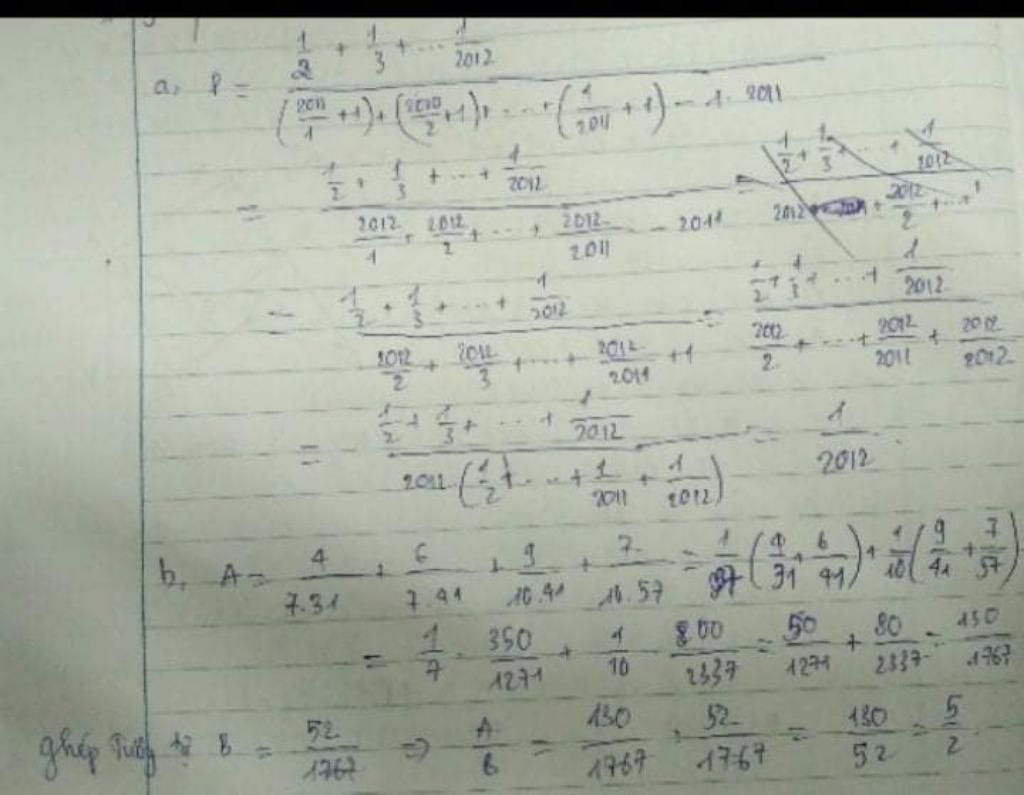 a, P = \frac{\frac{1}{2} + \frac{1}{3} + ... \frac{1}{2012}}{(\frac{2011}{1} + 1) + (\frac{2010}{2} + 1) + ... + (\frac{1}{2011} + 1) - 1. 2011}
= \frac{\frac{1}{2} + \frac{1}{3} + ... + \frac{1}{2012}}{\frac{2012}{1} + \frac{2012}{2} + ... + \frac{2012}{2011} - 2011}
= \frac{\frac{1}{2} + \frac{1}{3} + ... + \frac{1}{2012}}{\frac{2012}{2} + \frac{2012}{3} + ... + \frac{2012}{2011} + 1} = \frac{\frac{1}{2} + \frac{1}{3} + ... + \frac{1}{2012}}{\frac{2012}{2} + ... + \frac{2012}{2011} + \frac{2012}{2012}}
= \frac{\frac{1}{2} + \frac{1}{3} + ... + \frac{1}{2012}}{2012 (\frac{1}{2} + ... + \frac{1}{2011} + \frac{1}{2012})} = \frac{1}{2012}.
b, A = \frac{4}{7.31} + \frac{6}{7.41} + \frac{9}{10.41} + \frac{7}{10.57} = \frac{1}{7} (\frac{4}{31} + \frac{6}{41}) + \frac{1}{10} (\frac{9}{41} + \frac{7}{57})
= \frac{1}{7} . \frac{350}{1271} + \frac{1}{10} . \frac{800}{2337} = \frac{50}{1271} + \frac{80}{2337} = \frac{130}{1767}
ghép tương tự B = \frac{52}{1767} ⇒ \frac{A}{B} = \frac{130}{1767} : \frac{52}{1767} = \frac{130}{52} = \frac{5}{2}.